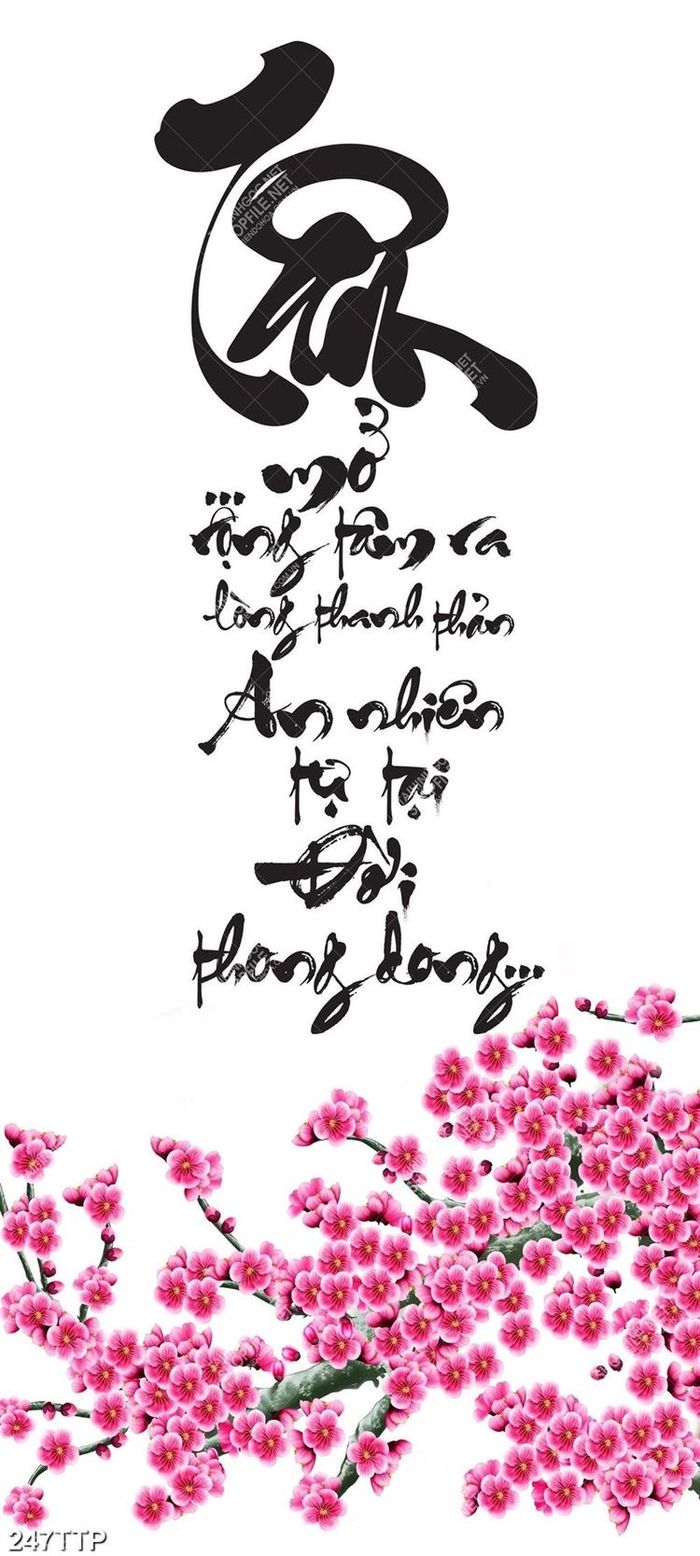 Tâm
mở
...rộng tâm ra
lòng thanh thản
An nhiên
tự tại
Đời
thong dong...
247TTP